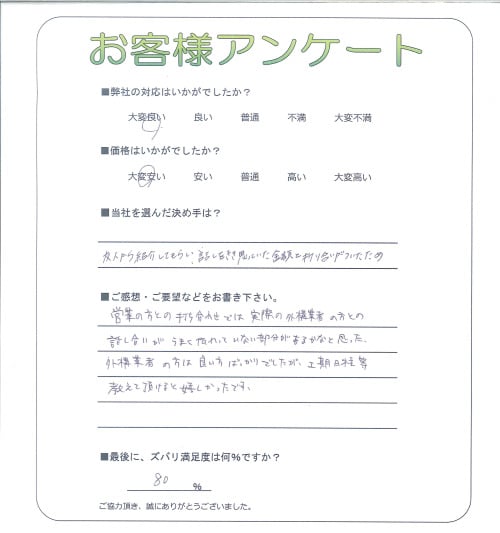 お客様アンケート
■弊社の対応はいかがでしたか？
大変良い 良い 普通 不満 大変不満
■価格はいかがでしたか？
大変安い 安い 普通 高い 大変高い
■当社を選んだ決め手は？
友人から紹介してもらい、話しを聞いた金額と折り合いがついたため
■ご感想・ご要望などをお書き下さい。
営業の方との打ち合わせでは実際の外構業者の方との
話し合いがうまく伝わっていない部分があるかなと思った。
外構業者の方は良い方ばっかりでしたが、工期日程等
教えて頂けると嬉しかったです。
■最後に、ズバリ満足度は何％ですか？
80 %
ご協力頂き、誠にありがとうございました。